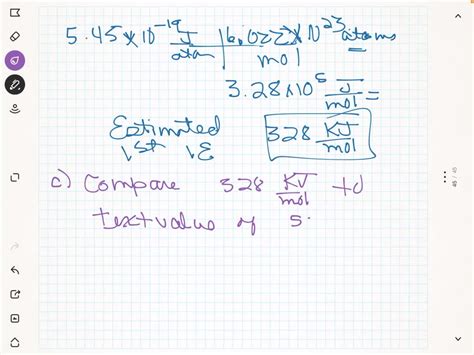 5.45×10⁻¹⁹ J/atom | 6.022×10²³ atoms/mol
3.28×10⁵ J/mol =
Estimated 328 KJ/mol
1st IE
c) Compare 328 KJ/mol to
text value of 5.